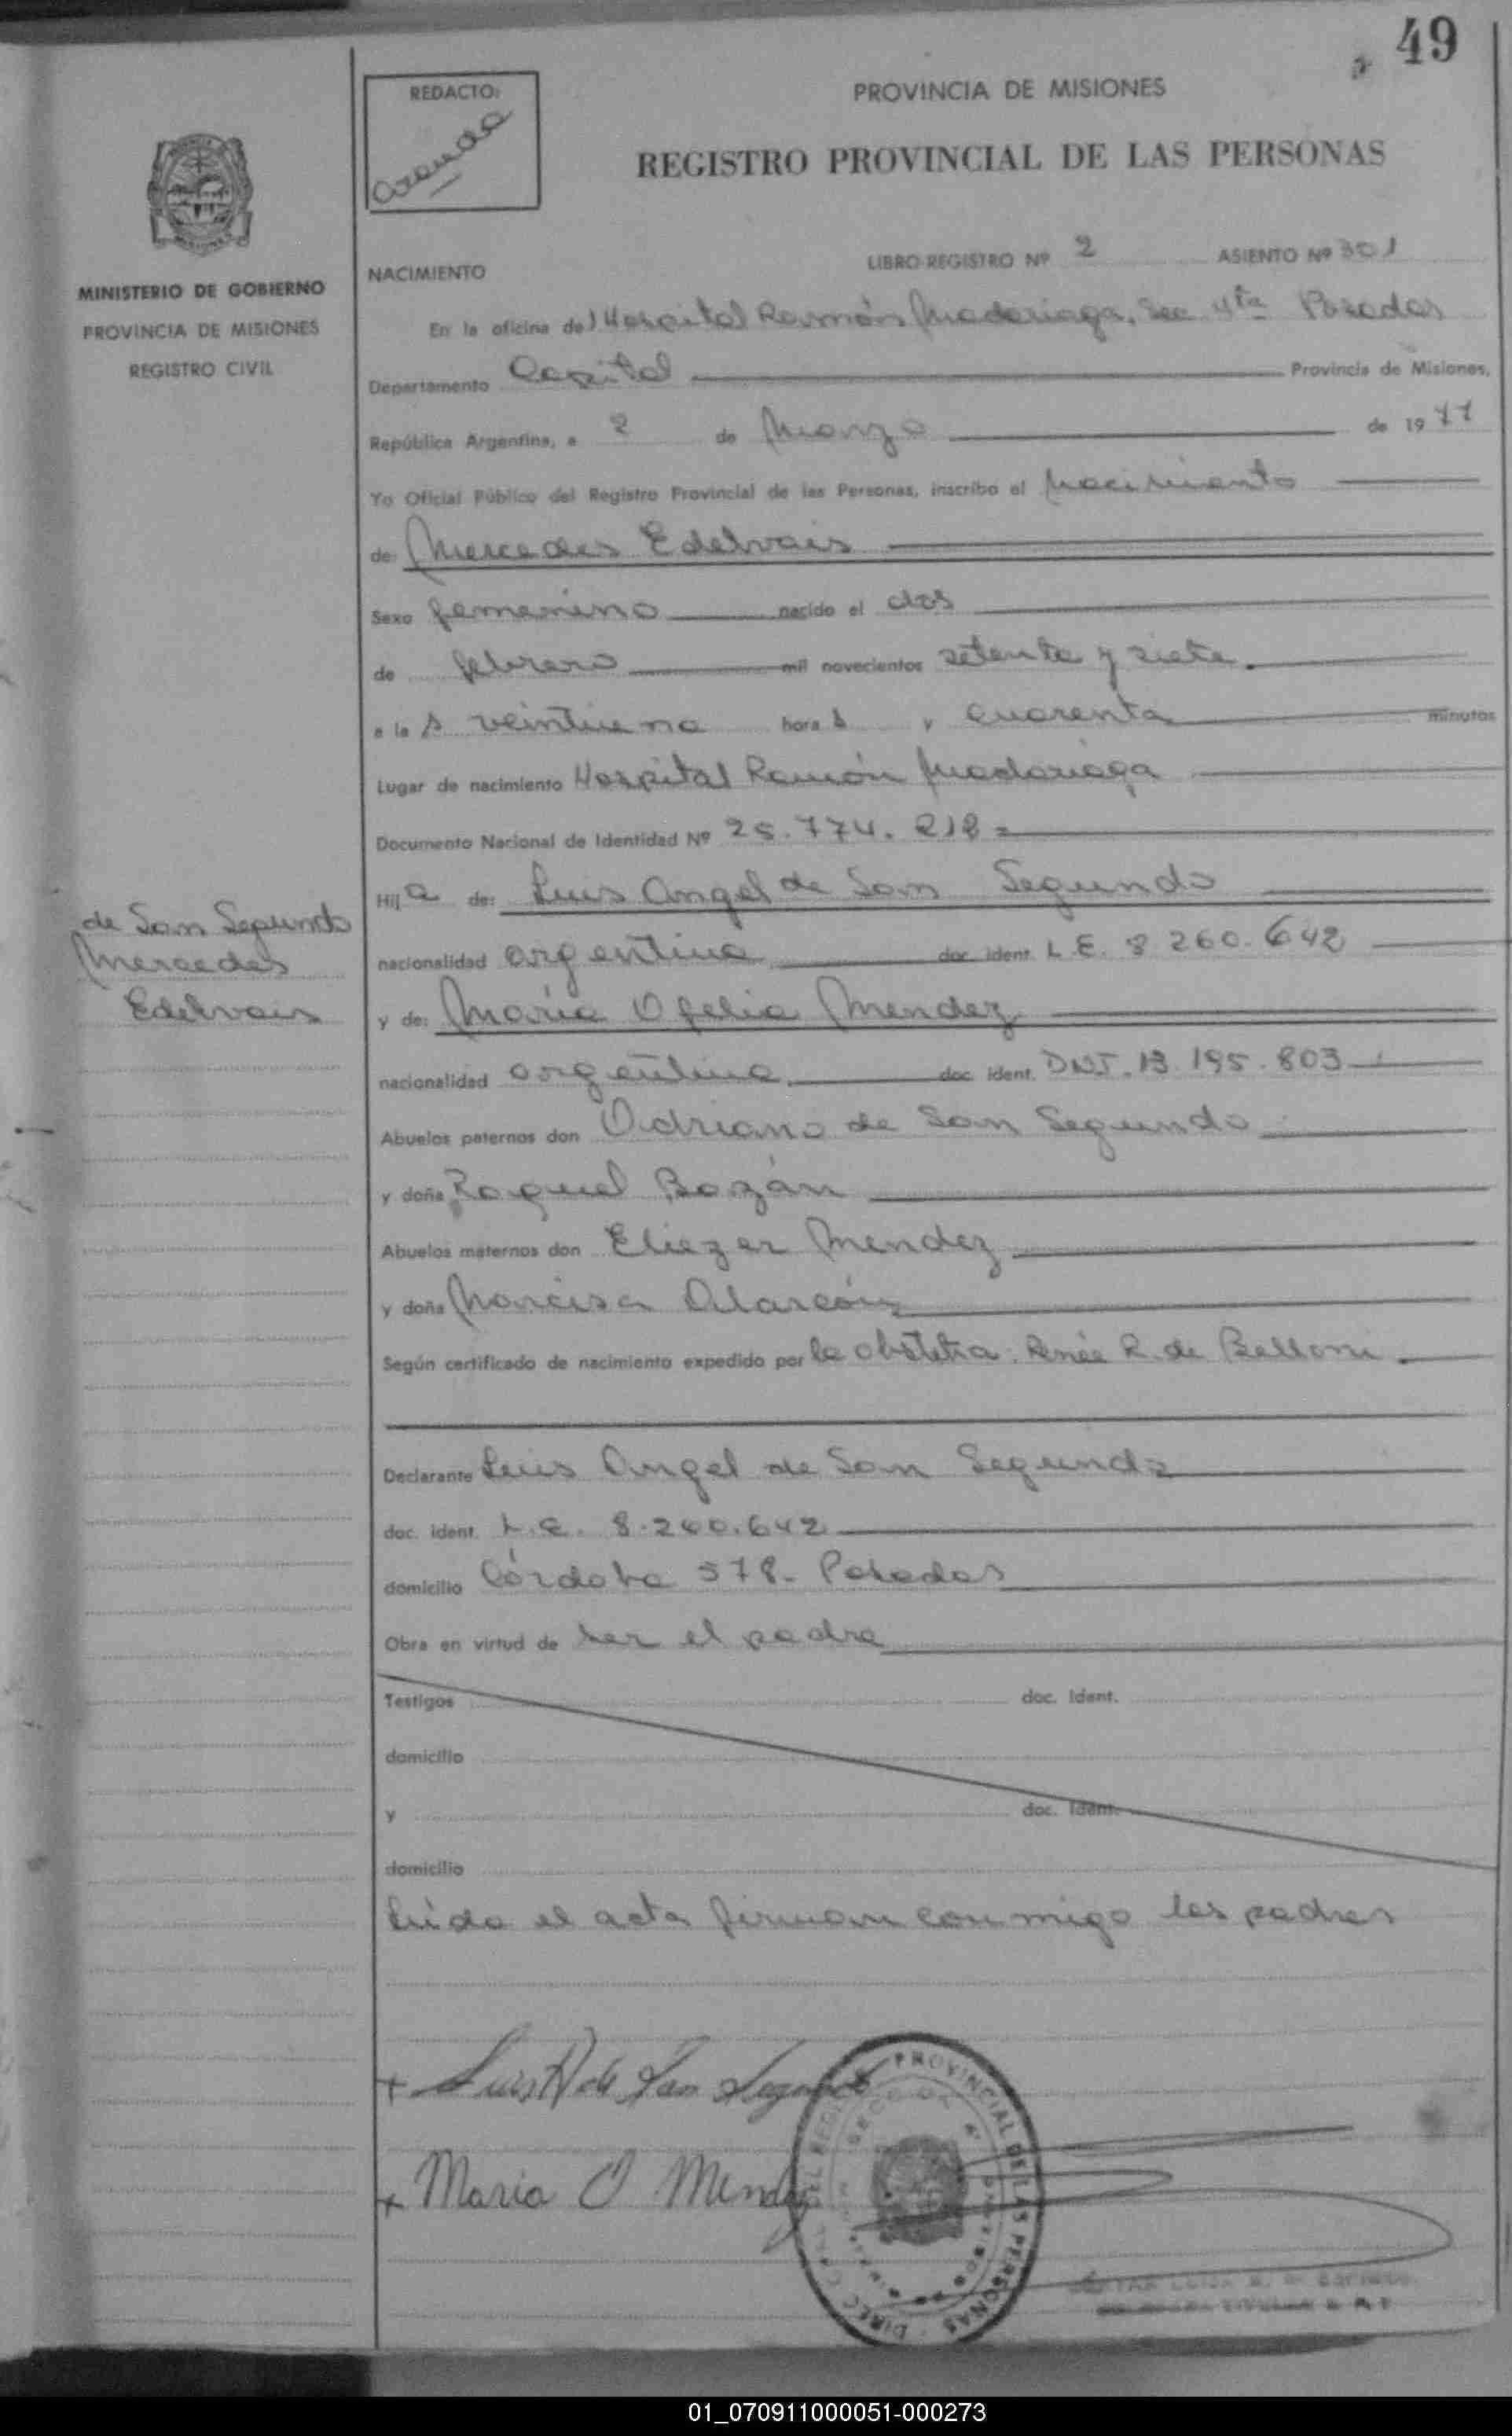 49
REDACTO:
PROVINCIA DE MISIONES
REGISTRO PROVINCIAL DE LAS PERSONAS
MINISTERIO DE GOBIERNO
PROVINCIA DE MISIONES
REGISTRO CIVIL
NACIMIENTO
LIBRO-REGISTRO Nº 2 ASIENTO Nº 301
En la oficina del Hospital Ramón Madariaga, Sec 4ta Posadas
Departamento Capital Provincia de Misiones,
República Argentina, a 2 de Marzo de 1977
Yo Oficial Público del Registro Provincial de las Personas, inscribo el Nacimiento
de: Mercedes Edelvais
Sexo femenino nacido el dos
de febrero mil novecientos setenta y siete.
a las veintiuna horas y cuarenta minutos
Lugar de nacimiento Hospital Ramón Madariaga
Documento Nacional de Identidad Nº 25.774.218=
Hija de: Luis Angel de San Segundo
de San Segundo
Mercedes
Edelvais
nacionalidad argentina doc. ident. L.E. 8 260.642
y de: María Ofelia Mendez
nacionalidad argentina doc. ident. DNI. 13.195.803
Abuelos paternos don Adriano de San Segundo
y doña Raquel Bazán
Abuelos maternos don Eliezer Mendez
y doña Narcisa Alarcón
Según certificado de nacimiento expedido por la obstetra: Renée R. de Belloni.
Declarante Luis Angel de San Segundo
doc. ident. L.E. 8.260.642
domicilio Córdoba 578- Posadas
Obra en virtud de ser el padre
Testigos doc. Ident.
domicilio
y doc. Ident.
domicilio
Leída el acta firman conmigo los padres
+ Luis A de San Segundo
+ Maria O Mendez
DIREC GRAL DEL REGISTRO PROVINCIAL DE LAS PERSONAS
01_070911000051-000273